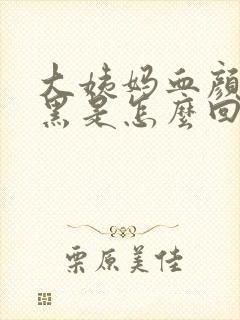 大姨妈血颜
黑是怎麼回
栗原美佳